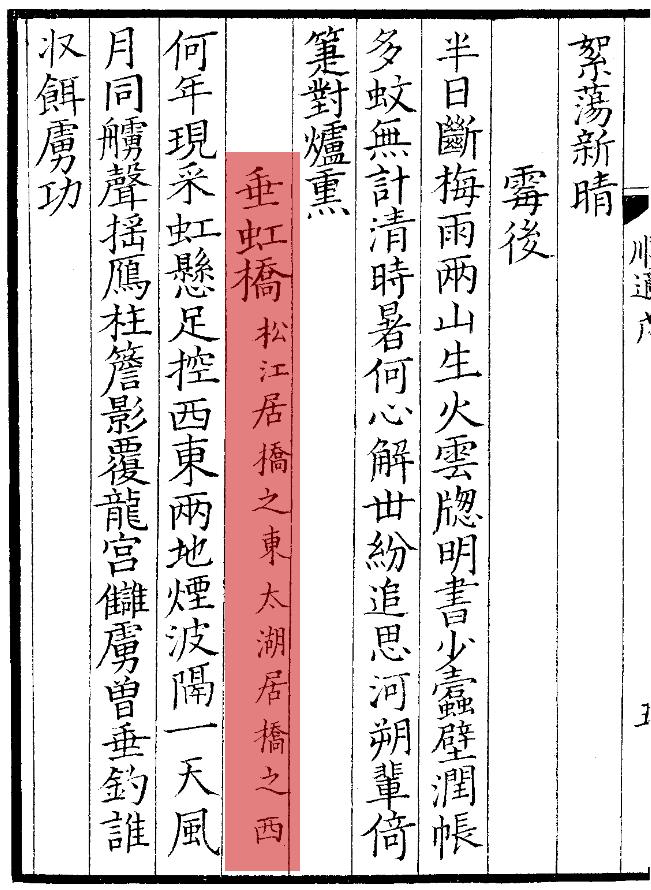 絮蕩新晴
霉後
半日斷梅雨兩山生火雲牕明書少蠹壁潤帳
多蚊無計清時暑何心解丗紛追思河朔輩倚
篷對爐熏
垂虹橋 松江居橋之東太湖居橋之西
何年現采虹懸足控西東兩地煙波隔一天風
月同艣聲揺鴈柱簷影覆龍宫讎虜曽垂釣誰
収餌虜功